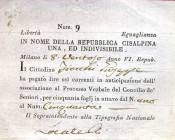 Num. 9
Libertà Eguaglianza
IN NOME DELLA REPUBBLICA CISALPINA
UNA, ED INDIVISIBILE.
Milano li 8 Ventoso anno VI. Repub.
Il Cittadino
ha pagato lire sei correnti in anticipazione dell'
associazione al Processo Verbale del Consiglio de'
Seniori, per cinquanta fogli in ottavo dal N. uno
al Num. Cinquanta
Il Soprintendente alla Tipografia Nazionale